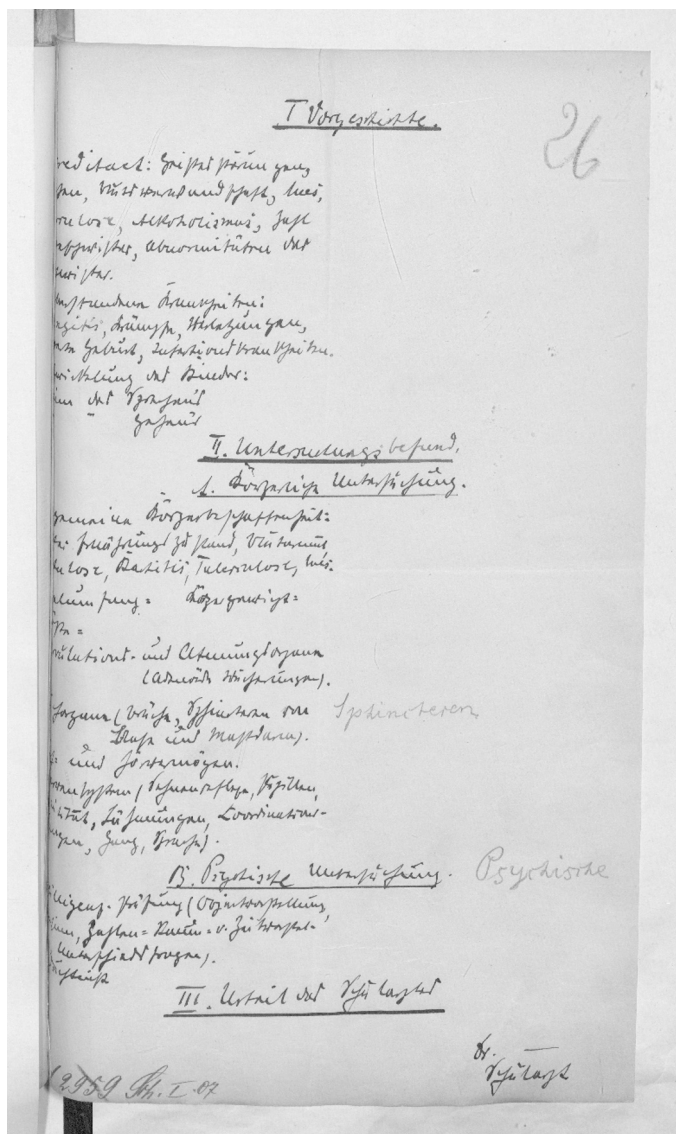 I Vorgeschichte.
26
reditaet: Geistesstörungen,
Blutsverwandtschaft, Lues,
Alkoholismus, Zahl
Abnormitäten der
wister.
standene Krankheiten:
ngitis, Krämpfe, Verletzungen,
Geburt, Infektionskrankheiten.
wickelung des Kindes:
des Sprechens
" Gehens
II. Untersuchungsbefund.
A. Körperliche Untersuchung.
gemeine Körperbeschaffenheit:
Ernährungszustand, Blutarmut,
ulose, Rachitis, Tuberculose, Lues.
Körpergewicht=
kulations- und Atmungsorgane
(Adenoide Wucherungen).
organe (Brüche, Sphincteren von Sphincteren
Blase und Mastdarm).
und Hörvermögen.
vensystem (Sehnenreflexe, Pupillen,
Lähmungen, Coordinations-
ngen, Gang, Sprache).
B. Psychische Untersuchung. Psychische
lligenz-Prüfung (Objectvorstellung,
Zahlen= Raum= u. Zeitvorstel-
Unterschiedsfragen).
dächtniß
III. Urteil des Schularztes
Dr. —
Schularzt
2959 Sch. I. 07